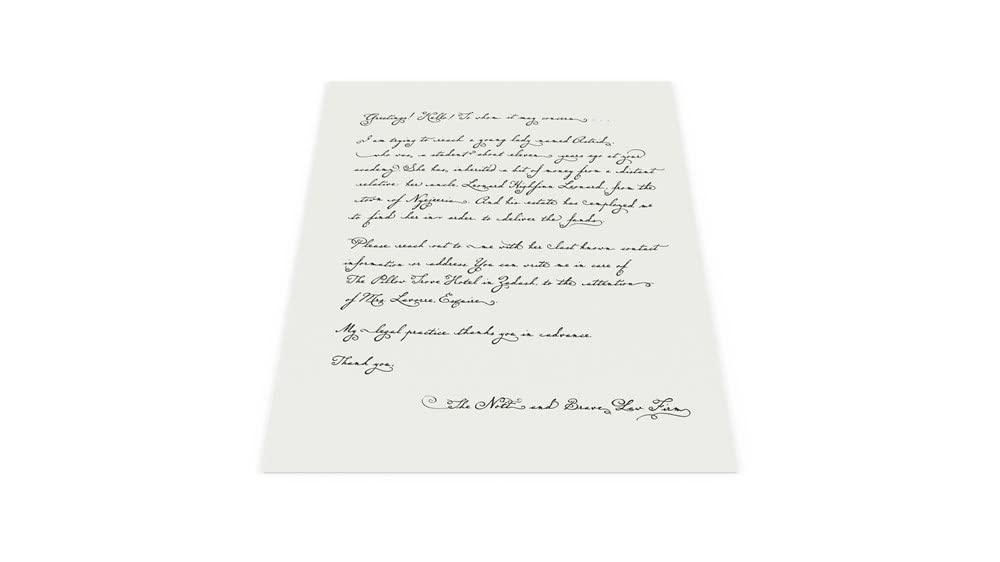 Greetings! Hello! To whom it may concern . . .
I am trying to reach a young lady named Astrid,
who was a student about eleven years ago at your
academy. She has inherited a bit of money from a distant
relative her uncle, Leonard Highfinn Leonard, from the
town of
And his estate has employed me
to find her in order to deliver the funds.
Please reach out to me with her last known contact
information or address. You can write me in care of
The Pillow Trove Hotel in Zadash, to the attention
of Mrs. Lavorre, Esquire.
My legal practice thanks you in advance.
Thank you,
The Nott and Brave Law Firm